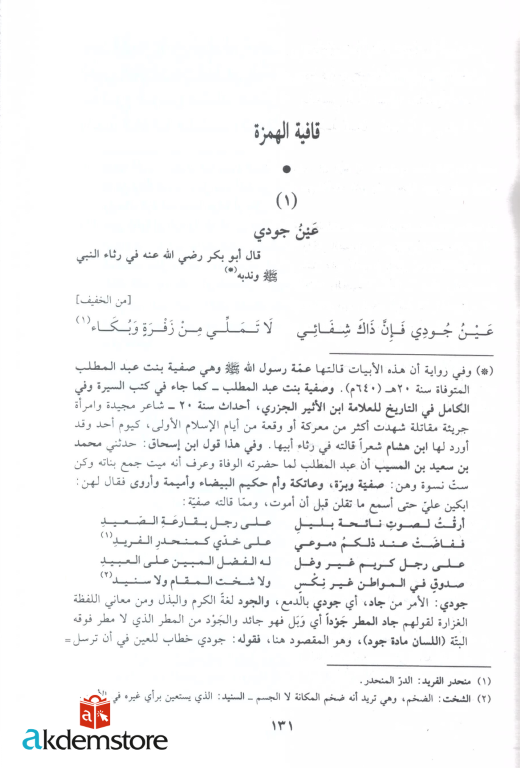 قافية الهمزة
•
(١)
عَيْنُ جودي
قال أبو بكر رضي الله عنه في رثاء النبي
ﷺ وندبه(*)
[من الخفيف]
عَيْنُ جُودِي فَإِنَّ ذَاكَ شِفَائِي لَا تَمَلِّي مِنْ زَفْرَةٍ وَبُكَاء(١)
(*) وفي رواية أن هذه الأبيات قالتها عمّة رسول الله ﷺ وهي صفية بنت عبد المطلب
المتوفاة سنة ٢٠هـ (٦٤٠م). وصفية بنت عبد المطلب ـ كما جاء في كتب السيرة وفي
الكامل في التاريخ للعلامة ابن الأثير الجزري، أحداث سنة ٢٠ ـ شاعر مجيدة وامرأة
جريئة مقاتلة شهدت أكثر من معركة أو وقعة من أيام الإسلام الأولى، كيوم أحد وقد
أورد لها ابن هشام شعراً قالته في رثاء أبيها. وفي هذا قول ابن إسحاق: حدثني محمد
بن سعيد بن المسيب أن عبد المطلب لما حضرته الوفاة وعرف أنه ميت جمع بناته وكن
ستّ نسوة وهن: صفيّة وبرّة، وعاتكة وأم حكيم البيضاء وأميمة وأروى فقال لهن:
ابكين عليّ حتى أسمع ما تقلن قبل أن أموت، وممّا قالته صفيّة:
أرقْتُ لصوتِ نائحة بليلٍ على رجل بقارعَةِ الصَعيدِ
ففاضَتْ عند ذلكمُ دموعي على خدّي كمنحدرِ الفريدِ(١)
على رجل كريم غير وغل له الفضل المبين على العبيدِ
صدوق في المواطن غير نِكْس ولا شخت المقام ولا سنيد(٢)
جودي: الأمر من جاد، أي جودي بالدمع، والجود لغةً الكرم والبذل ومن معاني اللفظة
الغزارة لقولهم جاد المطر جَوْداً أي وَبَل فهو جائد والجَوْد من المطر الذي لا مطر فوقه
البتّة (اللسان مادة جود)، وهو المقصود هنا، فقوله: جودي خطاب للعين في أن ترسل=
(١) منحدر الفريد: الدرّ المنحدر.
(٢) الشخت: الضخم، وهي تريد أنه ضخم المكانة لا الجسم ـ السنيد: الذي يستعين برأي غيره في
١٣١
akdemstore